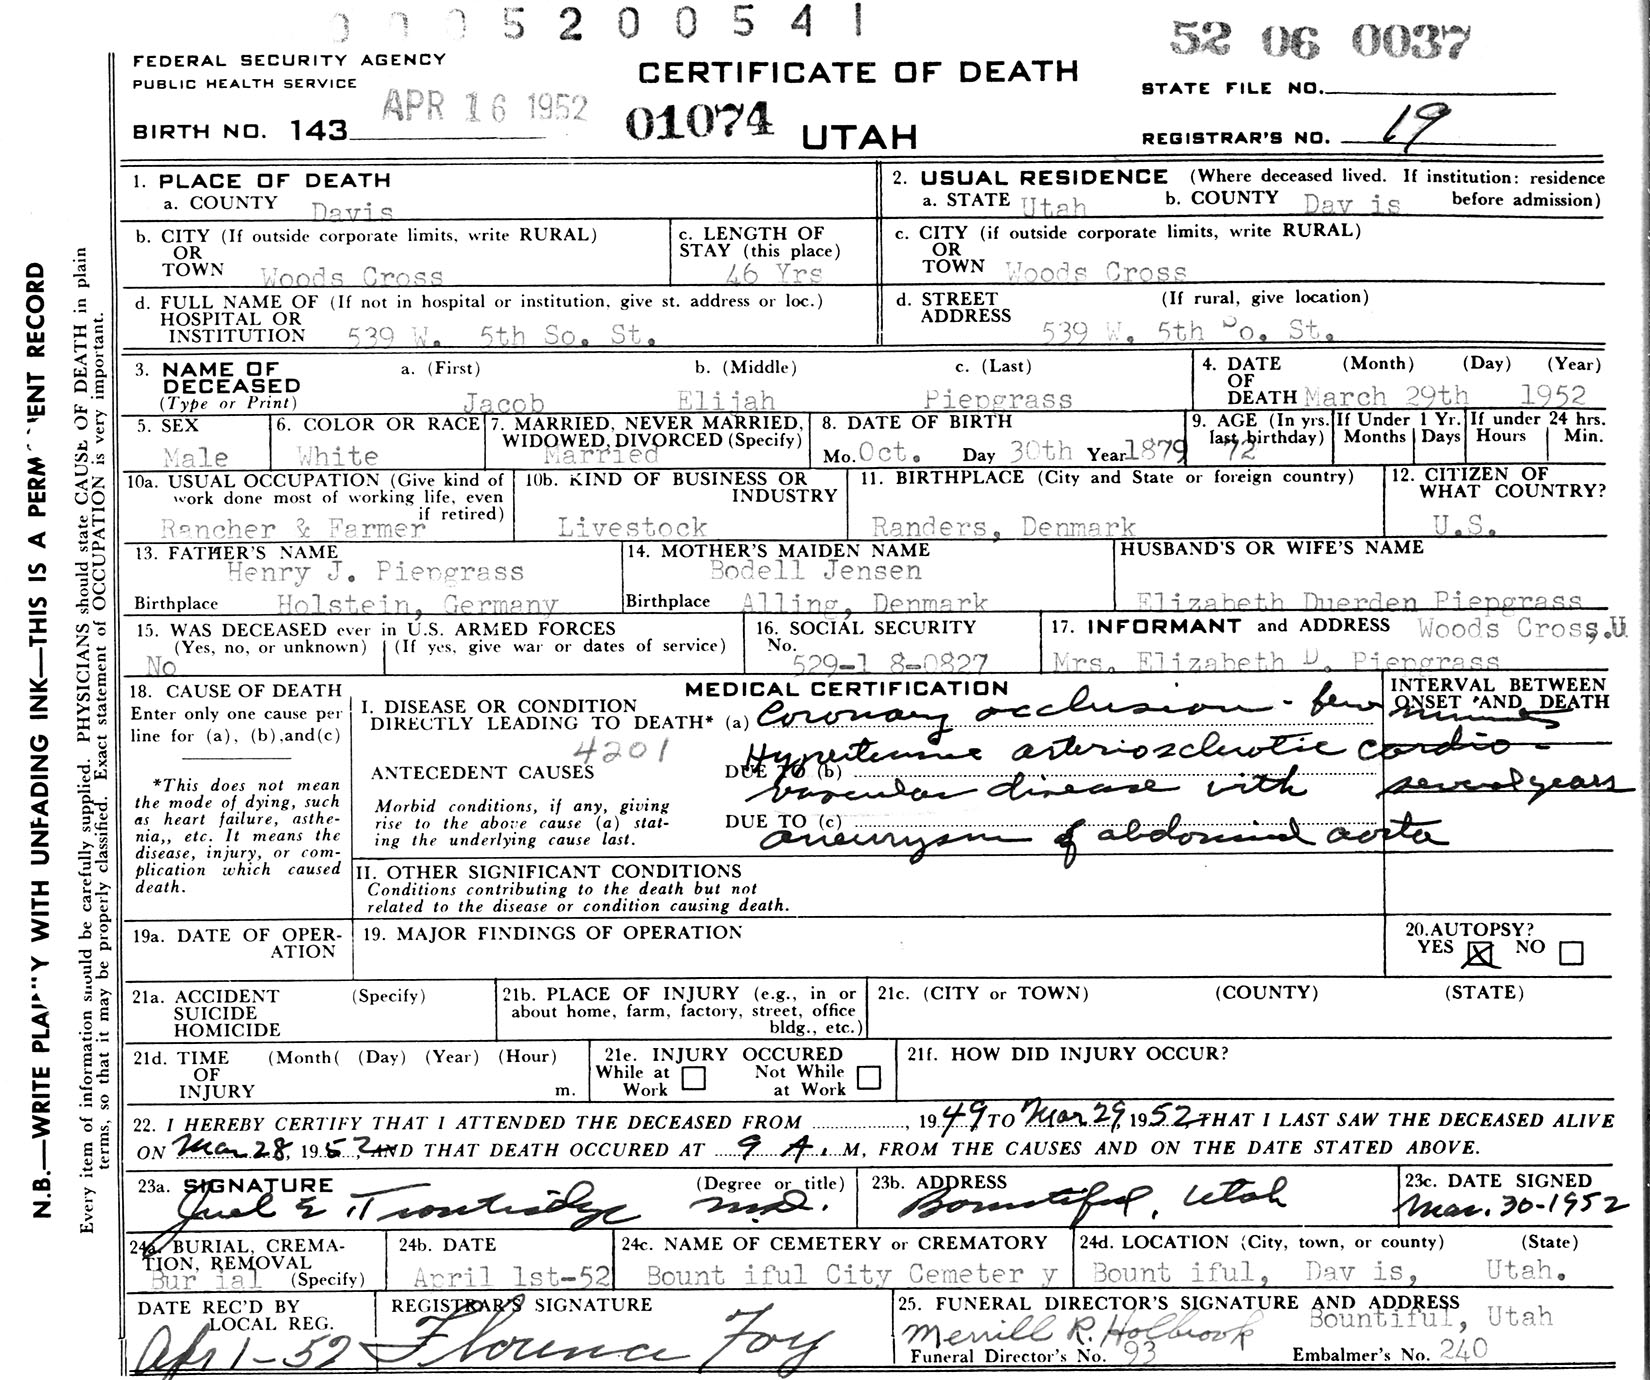 0 0 0 5 2 0 0 5 4 1
52 06 0037
FEDERAL SECURITY AGENCY
PUBLIC HEALTH SERVICE
CERTIFICATE OF DEATH
STATE FILE NO.
APR 16 1952
BIRTH NO. 143
01074 UTAH
REGISTRAR'S NO. 19
N.B.—WRITE PLAINLY WITH UNFADING INK—THIS IS A PERMANENT RECORD
Every item of information should be carefully supplied. PHYSICIANS should state CAUSE OF DEATH in plain
terms, so that it may be properly classified. Exact statement of OCCUPATION is very important.
1. PLACE OF DEATH
a. COUNTY Davis
2. USUAL RESIDENCE (Where deceased lived. If institution: residence
a. STATE Utah b. COUNTY Dav is before admission)
b. CITY (If outside corporate limits, write RURAL)
OR
TOWN Woods Cross
c. LENGTH OF
STAY (this place)
46 Yrs
c. CITY (if outside corporate limits, write RURAL)
OR
TOWN Woods Cross
d. FULL NAME OF (If not in hospital or institution, give st. address or loc.)
HOSPITAL OR
INSTITUTION 539 W. 5th So. St.
d. STREET (If rural, give location)
ADDRESS
539 W. 5th So. St.
3. NAME OF a. (First) b. (Middle) c. (Last)
DECEASED
(Type or Print) Jacob Elijah Piepgrass
4. DATE (Month) (Day) (Year)
OF
DEATH March 29th 1952
5. SEX
Male
6. COLOR OR RACE
White
7. MARRIED, NEVER MARRIED,
WIDOWED, DIVORCED (Specify)
Married
8. DATE OF BIRTH
Mo. Oct. Day 30th Year 1879
9. AGE (In yrs.
last birthday)
72
If Under 1 Yr.
Months Days
If under 24 hrs.
Hours Min.
10a. USUAL OCCUPATION (Give kind of
work done most of working life, even
if retired)
Rancher & Farmer
10b. KIND OF BUSINESS OR
INDUSTRY
Livestock
11. BIRTHPLACE (City and State or foreign country)
Randers, Denmark
12. CITIZEN OF
WHAT COUNTRY?
U.S.
13. FATHER'S NAME
Henry J. Piepgrass
Birthplace Holstein, Germany
14. MOTHER'S MAIDEN NAME
Bodell Jensen
Birthplace Alling, Denmark
HUSBAND'S OR WIFE'S NAME
Elizabeth Duerden Piepgrass
15. WAS DECEASED ever in U.S. ARMED FORCES
(Yes, no, or unknown) (If yes, give war or dates of service)
No
16. SOCIAL SECURITY
No.
529-1 8-0827
17. INFORMANT and ADDRESS Woods Cross, U.
Mrs. Elizabeth D. Piepgrass
18. CAUSE OF DEATH
Enter only one cause per
line for (a), (b), and (c)
*This does not mean
the mode of dying, such
as heart failure, asthe-
nia,, etc. It means the
disease, injury, or com-
plication which caused
death.
MEDICAL CERTIFICATION
INTERVAL BETWEEN
ONSET AND DEATH
I. DISEASE OR CONDITION
DIRECTLY LEADING TO DEATH* (a) Coronary occlusion - few minutes
4201
ANTECEDENT CAUSES DUE TO (b) Hypertensive arteriosclerotic cardio-
vascular disease with several years
Morbid conditions, if any, giving
rise to the above cause (a) stat-
ing the underlying cause last.
DUE TO (c) aneurysm of abdominal aorta
II. OTHER SIGNIFICANT CONDITIONS
Conditions contributing to the death but not
related to the disease or condition causing death.
19a. DATE OF OPER-
ATION
19. MAJOR FINDINGS OF OPERATION
20. AUTOPSY?
YES X NO
21a. ACCIDENT (Specify)
SUICIDE
HOMICIDE
21b. PLACE OF INJURY (e.g., in or
about home, farm, factory, street, office
bldg., etc.)
21c. (CITY or TOWN) (COUNTY) (STATE)
21d. TIME (Month( (Day) (Year) (Hour)
OF
INJURY m.
21e. INJURY OCCURED
While at Not While
Work at Work
21f. HOW DID INJURY OCCUR?
22. I HEREBY CERTIFY THAT I ATTENDED THE DECEASED FROM ..............., 1949 TO Mar 29, 1952 THAT I LAST SAW THE DECEASED ALIVE
ON Mar 28, 1952, AND THAT DEATH OCCURED AT 9 A. M, FROM THE CAUSES AND ON THE DATE STATED ABOVE.
23a. SIGNATURE (Degree or title)
M.D.
23b. ADDRESS
Bountiful, Utah
23c. DATE SIGNED
Mar. 30-1952
24a. BURIAL, CREMA-
TION, REMOVAL
Bur ial (Specify)
24b. DATE
April 1st-52
24c. NAME OF CEMETERY or CREMATORY
Bount iful City Cemeter y
24d. LOCATION (City, town, or county) (State)
Bount iful, Dav is, Utah.
DATE REC'D BY
LOCAL REG.
Apr 1-52
REGISTRAR'S SIGNATURE
Florence Foy
25. FUNERAL DIRECTOR'S SIGNATURE AND ADDRESS
Bountiful, Utah
Merrill R. Holbrook
Funeral Director's No. 93 Embalmer's No. 240